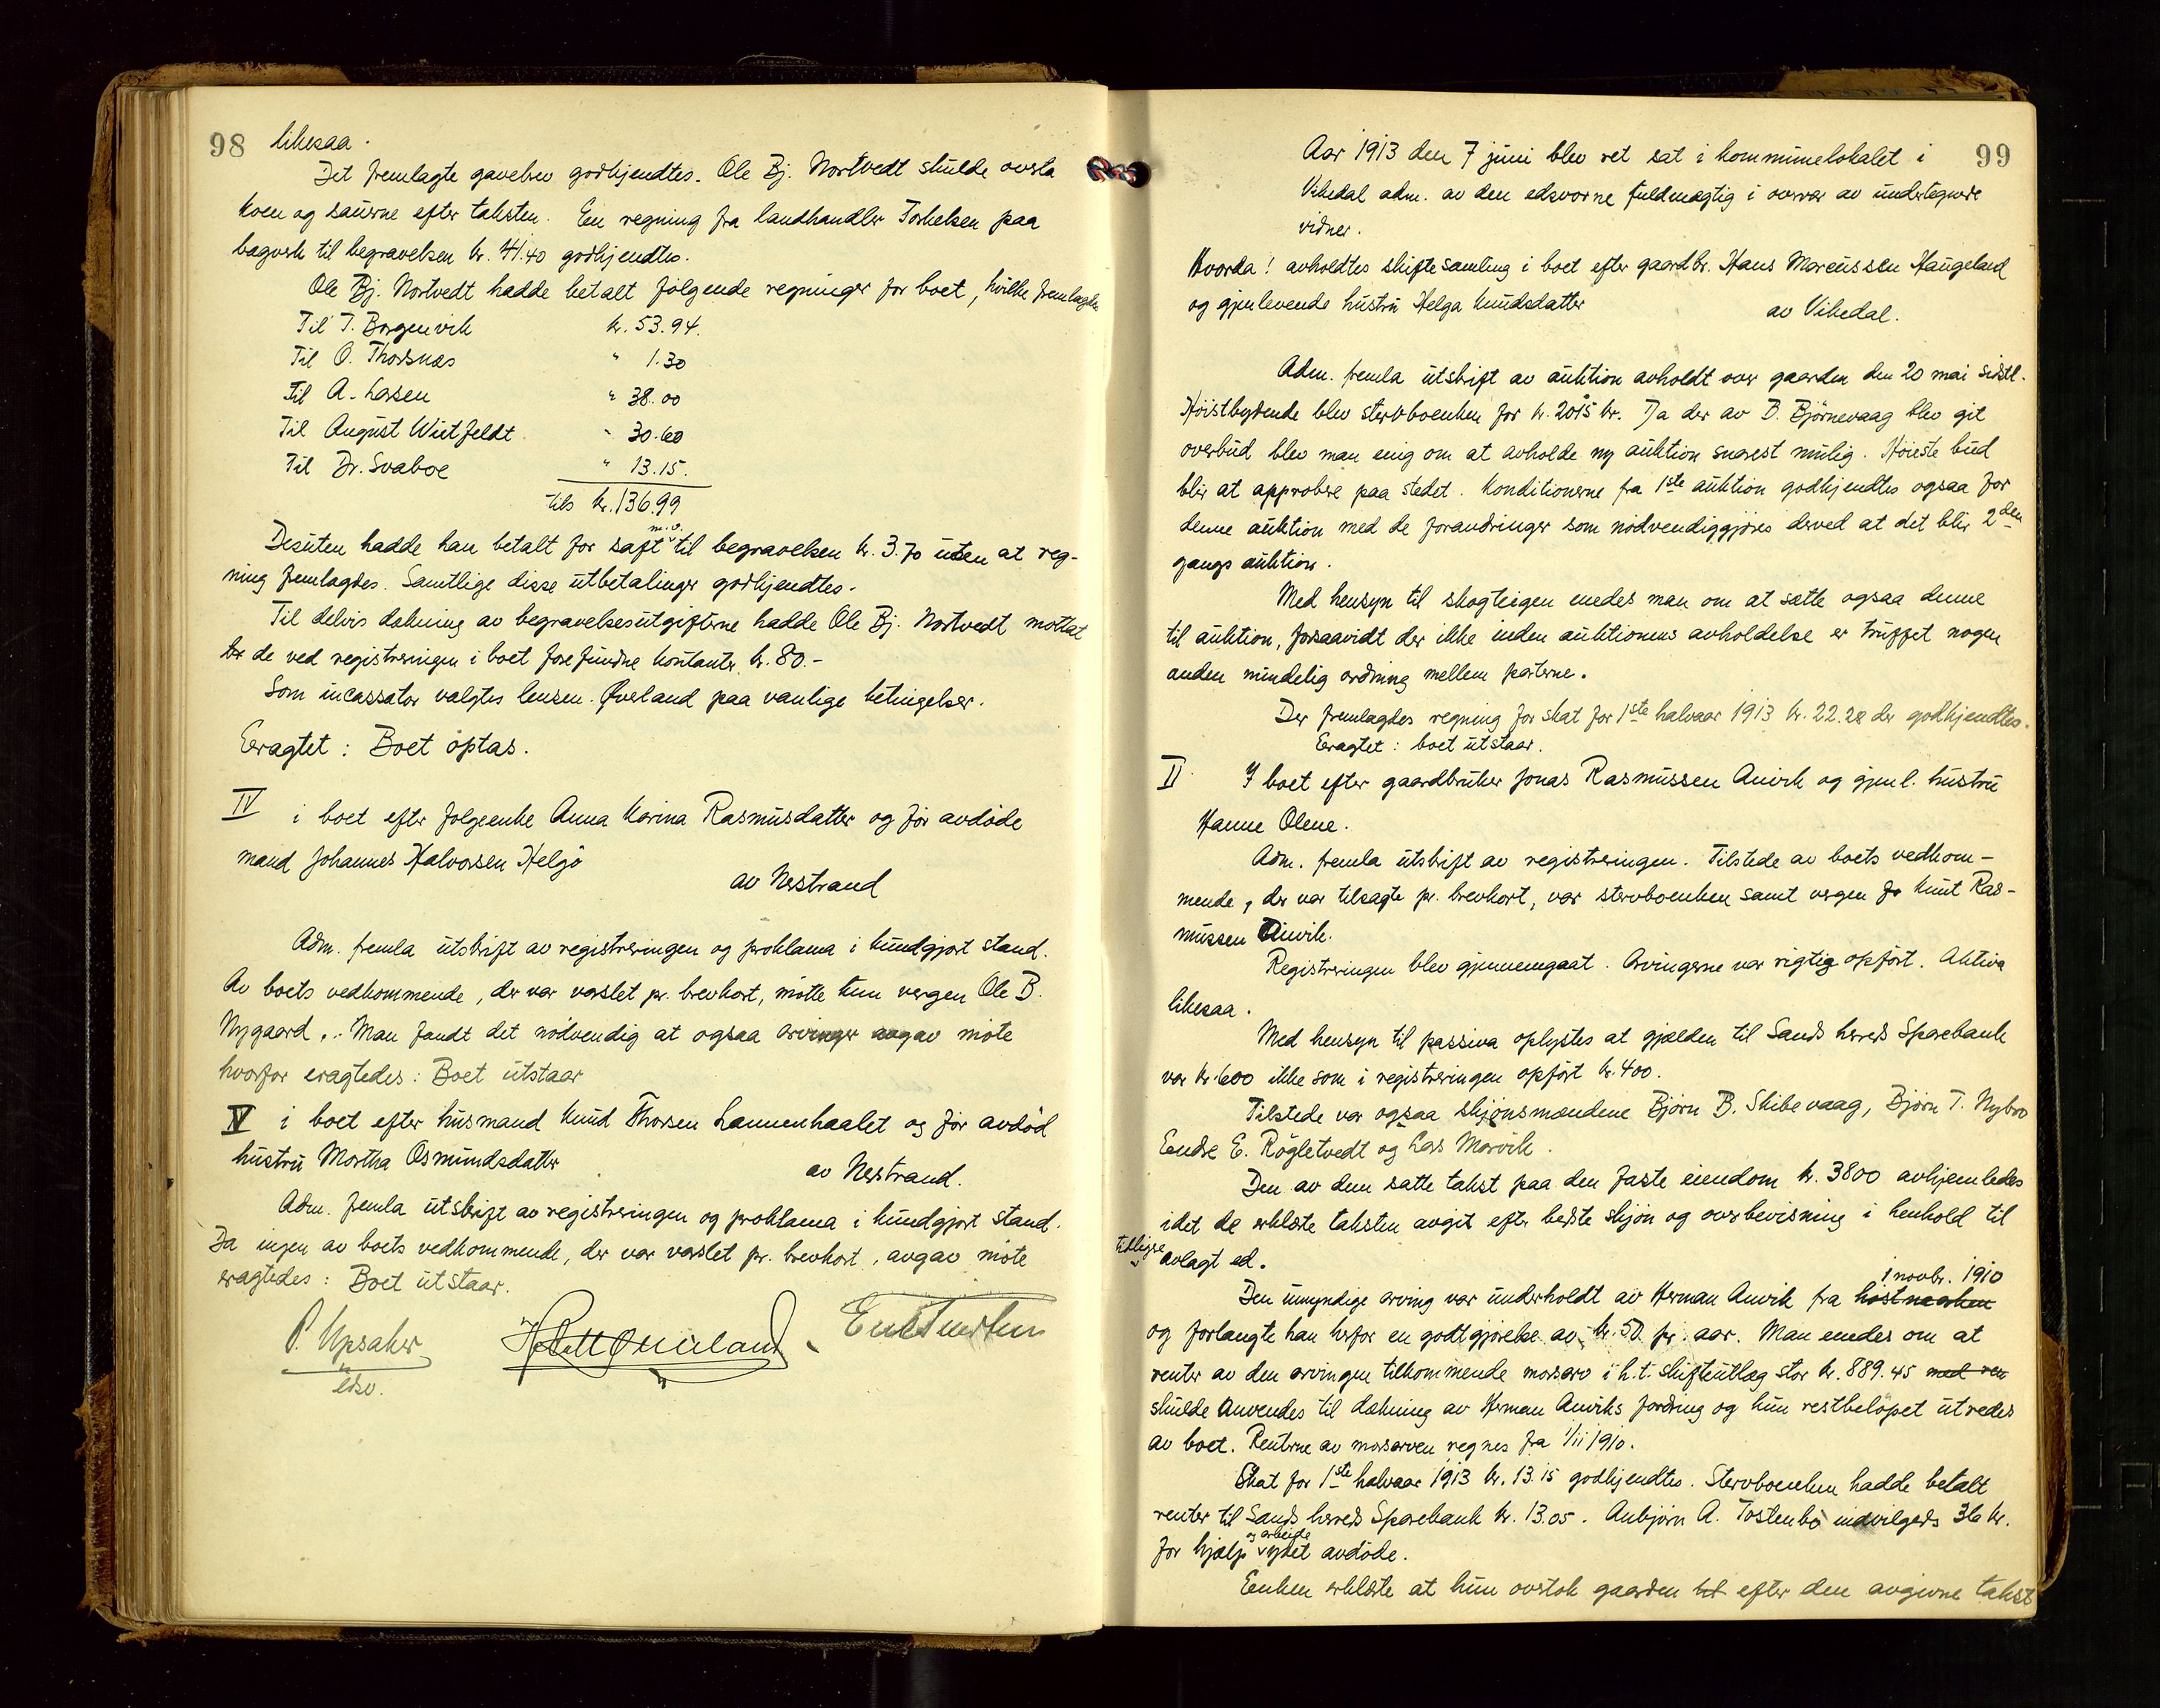 98 likesaa.
Det fremlagte gavebrev godkjendtes. Ole Bj. Nortvedt skulde overta
koen og sauerne efter taksten. En regning fra landhandler Torkelsen paa
bagverk til begravelsen kr. 41.40 godkjendtes.
Ole Bj. Nortvedt hadde betalt følgende regninger for boet, hvilke fremlagdes
Til T. Borgenvik kr. 53.94.
Til O. Thorsnæs " 1.30
Til A. Larsen " 38.00
Til August Wiitfeldt " 30.60
Til Dr. Svaboe " 13.15.
tils kr. 136.99
m.v.
Desuten hadde han betalt for saft til begravelsen kr. 3.70 uten at reg-
ning fremlagdes. Samtlige disse utbetalinger godkjendtes.
Til delvis dækning av begravelsesutgifterne hadde Ole Bj. Nortvedt mottat
de ved registreringen i boet forefundne kontanter kr. 80.-
Som incassator valgtes lensm. Øverland paa vanlige betingelser.
Eragtet: Boet optas.
IV i boet efter følgeenke Anna Karina Rasmusdatter og før avdøde
mand Johannes Halvorsen Helgø
av Nerstrand
Adm. fremla utskrift av registreringen og proklama i kundgjort stand.
Av boets vedkommende, der var varslet pr. brevkort, møtte kun vergen Ole B.
Nygaard. Man fandt det nødvendig at ogsaa arvinger avgav møte
hvorfor eragtedes: Boet utstaar
V i boet efter husmand Knud Thorsen Lammenhaalet og før avdød
hustru Martha Osmundsdatter
av Nerstrand.
Adm. fremla utskrift av registreringen og proklama i kundgjort stand.
Da ingen av boets vedkommende, der var varslet pr. brevkort, avgav møte
eragtedes: Boet utstaar.
P. Upsaker
edsv.
99
Aar 1913 den 7 juni blev ret sat i kommunelokalet i
Vikedal adm. av den edsvorne fuldmægtig i overvær av undertegnede
vidner.
Hvorda! avholdtes skiftesamling i boet efter gaardbr. Hans Marcussen Haugeland
og gjenlevende hustru Helga Knudsdatter
av Vikedal.
Adm. fremla utskrift av auktion avholdt over gaarden den 20 mai sidstl.
Høistbydende blev stervboenken for kr. 2015 kr. Da der av B. Bjørnevaag blev git
overbud blev man enig om at avholde ny auktion snarest mulig. Høieste bud
blir at approbere paa stedet. Konditionerne fra 1ste auktion godkjendtes ogsaa for
denne auktion med de forandringer som nødvendiggjøres derved at det blir 2den
gangs auktion.
Med hensyn til skogteigen enedes man om at sætte ogsaa denne
til auktion, forsaavidt der ikke inden auktionens avholdelse er truffet nogen
anden mindelig ordning mellem parterne.
Der fremlagdes regning for skat for 1ste halvaar 1913 kr. 22.28 der godkjendtes.
Eragtet: boet utstaar.
II I boet efter gaardbruker Jonas Rasmussen Anvik og gjenl. hustru
Hanne Olene.
Adm. fremla utskrift av registreringen. Tilstede av boets vedkom-
mende, der var tilsagte pr. brevkort, var stervboenken samt vergen Knut Ras-
mussen Anvik.
Registreringen blev gjennemgaat. Arvingerne var rigtig opført. Aktiva
likesaa.
Med hensyn til passiva oplystes at gjælden til Sands herreds Sparebank
var kr. 600 ikke som i registreringen opført kr. 400.
Tilstede var ogsaa skjønsmændene Bjørn B. Skibevaag, Bjørn T. Nybro
Endre E. Røgletvedt og Lars Marvik.
Den av dem satte takst paa den faste eiendom kr. 3800 avhjemledes
idet de erklærte taksten avgit efter bedste skjøn og overbevisning i henhold til
tidligere avlagt ed.
1 novbr. 1910
Den umyndige arving var underholdt av Herman Anvik fra høstmarken
og forlangte han herfor en godtgjørelse av kr. 50 pr. aar. Man enedes om at
renter av den arvingen tilkommende morsarv i h.t. skifteutlæg stor kr. 889.45 med ren
skulde anvendes til dækning av Herman Anviks fordring og kun restbeløpet utredes
av boet. Renterne av morsarven regnes fra 1/11 1910.
Skat for 1ste halvaar 1913 kr. 13.15 godkjendtes. Stervboenken hadde betalt
renter til Sands herreds Sparebank kr. 13.05. Anbjørn A. Tostenbø indvilgeds 36 kr.
og arbeide
for hjælp ydet avdøde.
Eenken erklærte at hun overtok gaarden efter den avgivne takst